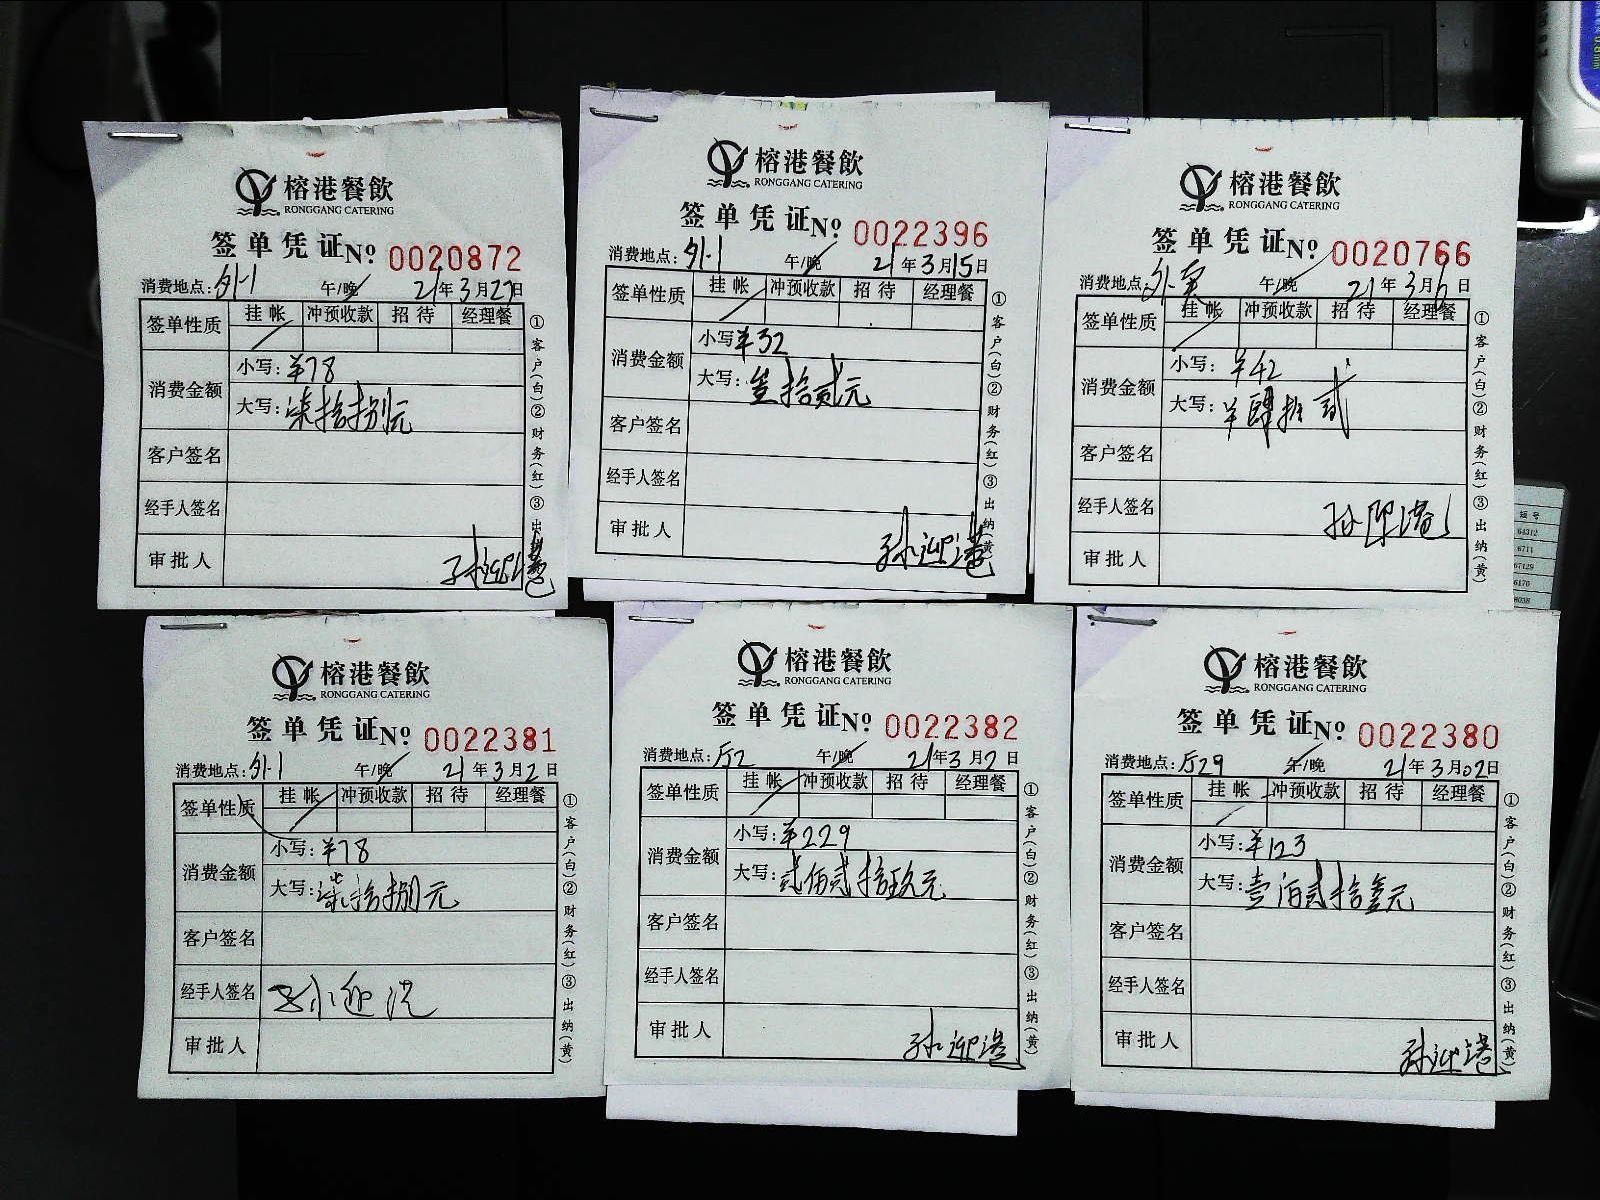 榕港餐飲
RONGGANG CATERING
签单凭证 No 0020872
消费地点: 外-1 午/晚 21年3月27日
签单性质 挂帐 冲预收款 招待 经理餐
消费金额 小写: ¥78
大写: 柒拾捌元
客户签名
经手人签名
审批人 孙迎港
①客户(白)②财务(红)③出纳(黄)
榕港餐飲
RONGGANG CATERING
签单凭证 No 0022396
消费地点: 外-1 午/晚 21年3月15日
签单性质 挂帐 冲预收款 招待 经理餐
消费金额 小写 ¥32
大写: 叁拾贰元
客户签名
经手人签名
审批人 孙迎港
①客户(白)②财务(红)③出纳(黄)
榕港餐飲
RONGGANG CATERING
签单凭证 No 0020766
消费地点: 午/晚 21年3月6日
签单性质 挂帐 冲预收款 招待 经理餐
消费金额 小写: ¥42
大写: ¥肆拾贰
客户签名
经手人签名
审批人
①客户(白)②财务(红)③出纳(黄)
短号
64312
6711
67129
6170
8038
榕港餐飲
RONGGANG CATERING
签单凭证 No 0022381
消费地点: 外-1 午/晚 21年3月2日
签单性质 挂帐 冲预收款 招待 经理餐
消费金额 小写: ¥78
大写: 柒拾捌元
客户签名
经手人签名
审批人
①客户(白)②财务(红)③出纳(黄)
榕港餐飲
RONGGANG CATERING
签单凭证 No 0022382
消费地点: 午/晚 21年3月2日
签单性质 挂帐 冲预收款 招待 经理餐
消费金额 小写: ¥229
大写: 贰佰贰拾玖元
客户签名
经手人签名
审批人 孙迎港
①客户(白)②财务(红)③出纳(黄)
榕港餐飲
RONGGANG CATERING
签单凭证 No 0022380
消费地点: 午/晚 21年3月02日
签单性质 挂帐 冲预收款 招待 经理餐
消费金额 小写: ¥123
大写: 壹佰贰拾叁元
客户签名
经手人签名
审批人 孙迎港
①客户(白)②财务(红)③出纳(黄)